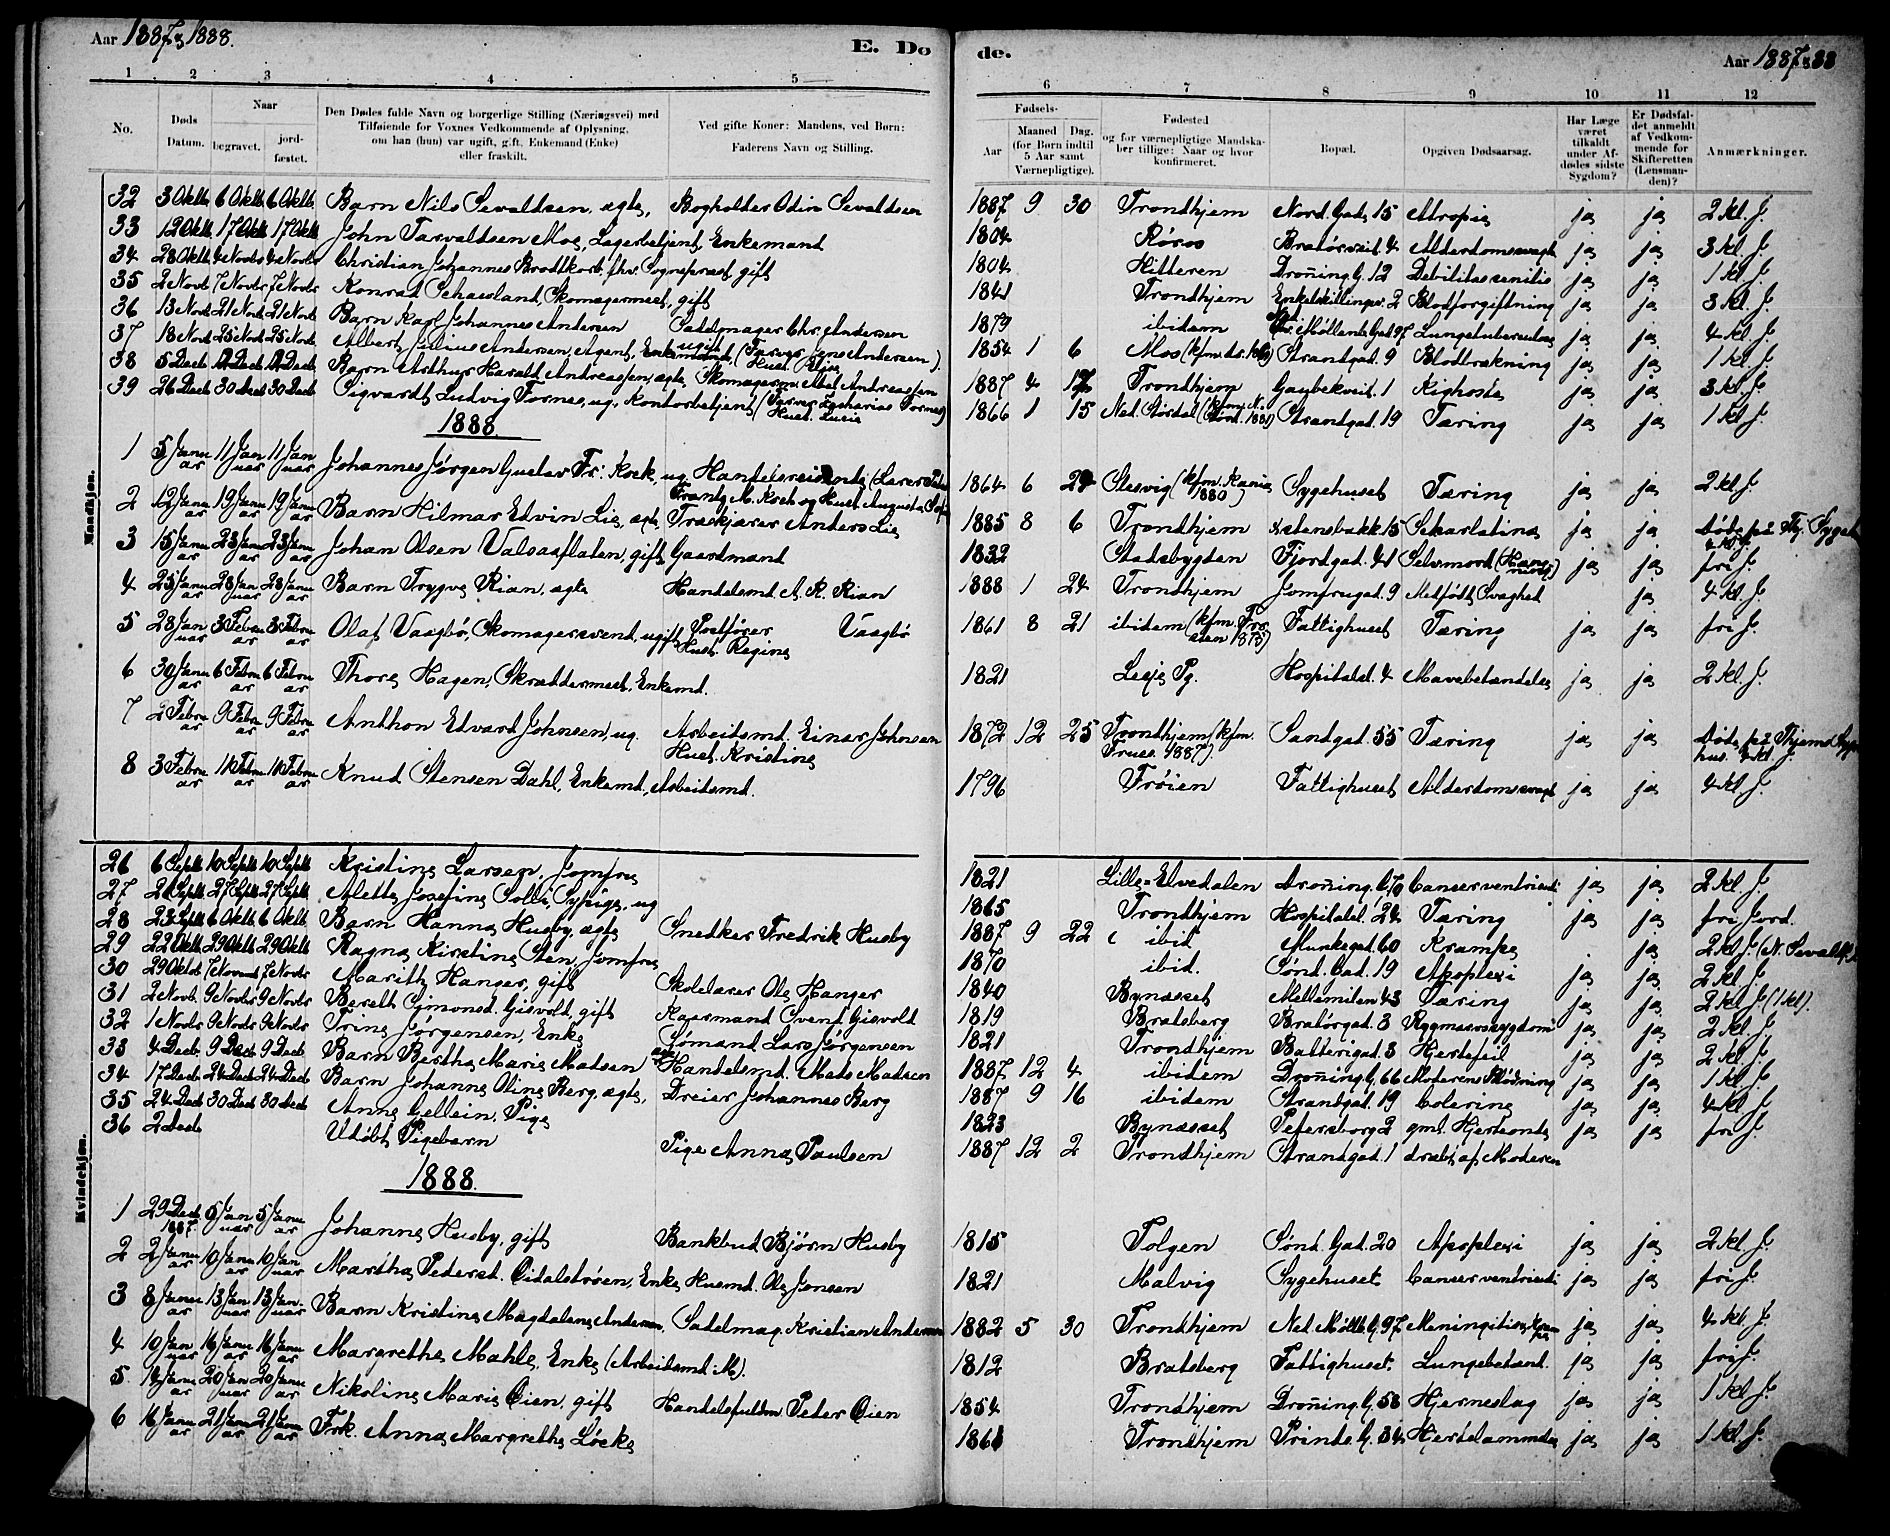 Aar 1887 & 1888.
E. Do
de.
Aar 1887 & 88
1 2 3 4 5
6 7 8 9 10 11 12
No.
Døds Datum.
Naar
begravet.
jord-fæstet.
Den Dødes fulde Navn og borgerlige Stilling (Næringsvei) med
Tilføiende for Voxnes Vedkommende af Oplysning,
om han (hun) var ugift, gift, Enkemand (Enke)
eller fraskilt.
Ved gifte Koner: Mandens, ved Børn:
Faderens Navn og Stilling.
Fødsels-
Aar
Maaned Dag.
(for Børn indtil
5 Aar samt
Værnepligtige).
Fødested
og for værnepligtige Mandska-
ber tillige: Naar og hvor
konfirmeret.
Bopæl.
Opgiven Dødsaarsag.
Har Læge
været
tilkaldt
under Af-
dødes sidste
Sygdom?
Er Dødsfal-
det anmeldt
af Vedkom-
mende for
Skifteretten
(Lensman-
den)?
Anmærkninger.
Mandkjøn.
32 3 Oktb. 6 Oktb. 6 Oktb. Barn Nils Sevaldsen, ægte, Bogholder Odin Sevaldsen 1887 9 30 Trondhjem Nord. Gad. 15 Atropie ja ja 2 kl. J.
33 12 Oktb. 17 Oktb. 17 Oktb. John Tarvaldsen Moe, Lagerbetjent, Enkemand 1804 Røros Alderdomssvagh. ja ja 3 kl. J.
34 28 Oktb. 4 Novbr 4 Novbr Christian Johannes Brodtkorb, fhv. Sognepræst, gift 1804 Hitteren Dronning. G. 12 Debilitas senilis ja ja 1 kl. J.
35 2 Novb. 7 Novbr 7 Novbr Konrad Schaesland, Skomagermest, gift 1841 Trondhjem Enkeltskillingsv. 2 Blodforgiftning ja ja 3 kl. J.
36 13 Novb. 21 Novb. 21 Novb. Barn Karl Johannes Andersen Sadelmager Chr. Andersen 1879 ibidem Møllenb. Gad 97 Lungetuberculose ja ja 4 kl. J.
37 18 Novb. 25 Novb. 25 Novb. Albert Julius Andersen, Agent, ugift 1854 1 6 Mos Strandgad. 9 Blodbrækning ja ja 1 kl. J.
38 5 Decb. 12 Decb. 12 Decb. Barn Arthur Harald Andreassen, ægte, Skomagerm. Abel Andreassen 1887 4 Trondhjem Gaubekveit. 1 Kighoste ja ja 3 kl. J.
39 26 Decb. 30 Decb. 30 Decb. Sigvardt Ludvig Fornes, ug. Kontorbetjent (Farver Zacharias Fornes) 1866 1 15 Ned. Størdal Strandgad. 19 Tæring ja ja 1 kl. J.
1888
1 5 Januar 11 Januar 11 Januar Johannes Jørgen Gustav Fr. Koek, ug. Handelsreisende 1864 6 Slesvig Sygehuset Tæring ja ja 2 kl. J.
2 12 Januar 19 Januar 19 Januar Barn Hilmar Edvin Lie, ægte, Træskjærer Anders Lie 1885 8 6 Trondhjem Skarlatina ja ja
3 15 Januar 23 Januar 23 Januar Johan Olsen Valsaaflaten, gift Gaardmand 1832 Stadsbygden Fjordgad. 41 Selvmord ja ja fri J.
4 25 Januar 28 Januar 28 Januar Barn Trygve Rian, ægte Handelsmd. A. R. Rian 1888 1 24 Trondhjem Jomfrugad. 9 Medfødt Svaghed ja 4 kl. J.
5 28 Januar 3 Februar 3 Februar Olaf Vaagbø, Skomagersvend, ugift Postfører Vaagbø
Hust. Regine 1861 8 21 ibidem Fattighuset Tæring ja ja fri J.
6 30 Januar 6 Februar 6 Februar Thore Hagen, Skræddermest, Enkemd. 1821 Lesje Pg. Hospitalsl. 4 Mavebetændelse ja ja 2 kl. J.
7 2 Februar 9 Februar 9 Februar Anthon Edvard Johnsen, ug. Arbeidsmd. Einar Johnsen
Hust. Kristine 1872 12 25 Trondhjem (kfm. Frues. 1887). Sandgad. 55 Tæring ja ja
8 3 Februar 11 Februar 11 Februar Knud Stensen Dahl, Enkemd., Arbeidsmd. 1796 Frøien Fattighuset Alderdomssvagh. ja ja 4 kl. J.
Kvindekjøn.
26 6 Septb. 10 Septb. 10 Septb. Kristine Larsen, Jomfru 1821 Lille-Elvedalen Dronning. G. 70 Cancer ventriculi ja ja 2 kl. J.
27 21 Septb. 27 Septb. 27 Septb. Alette Josefine Solli, Sypige, ug 1865 Trondhjem Hospitalsl. 24 Tæring ja ja fri Jord.
28 23 Septb. 6 Oktb. 6 Oktb. Barn Hanna Husby, ægte Snedker Fredrik Husby 1887 9 22 ibid Munkegad. 60 Krampe ja 2 kl. J.
29 22 Oktb. 29 Oktb. 29 Oktb. Ragna Kirstine Sten, Jomfru 1870 ibid. Sønd. Gad. 19 Apoplexi ja ja 2 kl. J.
30 29 Oktb. 7 Novbr 7 Novbr Marith Hanger, gift Skolelærer Ole Hanger 1840 Bynæsset Mellemilen 43 Tæring ja ja 2 kl. J. (1 kl).
31 2 Novb. 9 Novbr 9 Novbr Bereth Simonsd. Gisvold, gift Kaarmand Svend Gisvold 1819 Bratsberg Bratørgad. 3 Rygmarvssygdom ja ja 2 kl. J.
32 1 Novbr 9 Novbr 9 Novbr Trine Jørgensen, Enke Sømand Lars Jørgensen 1821 Trondhjem Batterigad. 3 Hjertefeil ja ja 2 kl. J.
33 4 Decb. 9 Decb. 9 Decb. Barn Bertha Marie Madsen Handelsmd. Mads Madsen 1887 12 4 ibidem Dronning. G. 66 Moderens Blødning ja ja 1 kl. J.
34 17 Decb. 24 Decb. 24 Decb. Barn Johanne Oline Berg, ægte, Dreier Johannes Berg 1887 9 16 ibidem Strandgad. 19 Colerine ja ja 4 kl. J.
35 24 Decb. 30 Decb. 30 Decb. Anne Gellein, Pige 1823 Bynæsset Petersborg 2 gml. Hjerteonde ja ja fri J.
36 2 Decb. Udøbt Pigebarn Pige Anna Paulsen 1887 12 2 Trondhjem Strandgad. 1 dræbt af Moderen
1888.
1 29 Decb. 1887 5 Januar 5 Januar Johanne Husby, gift Bankbud Bjørn Husby 1815 Tolgen Sønd. Gad. 20 Apoplexi ja ja 2 kl. J.
2 2 Januar 10 Januar 10 Januar Martha Pedersd. Oidalstrøen, Enke Husmd. Ole Jonsen 1821 Malvig Sygehuset Cancer ventriculi ja ja fri J.
3 8 Januar 13 Januar 13 Januar Barn Kristine Magdalene Andersen, Sadelmag. Kristian Andersen 1882 5 30 Trondhjem Ned. Møllb. G. 97 Meningitis ja ja 4 kl. J.
4 10 Januar 16 Januar 16 Januar Margrethe Mahle, Enke (Arbeidsmd. M). 1812 Bratsberg Fattighuset. Lungebetænd. ja ja fri J.
5 14 Januar 20 Januar 20 Januar Nikoline Marie Øien, gift Handelsfuldm. Peder Øien 1854 Trondhjem Dronning. G. 58 Hjerneslag ja ja 1 kl. J.
6 16 Januar 21 Januar 21 Januar Frk. Anna Margrethe Løcke 1861 Trondhjem Prinds. G. 34 Hjertelammelse ja ja 1 kl. J.